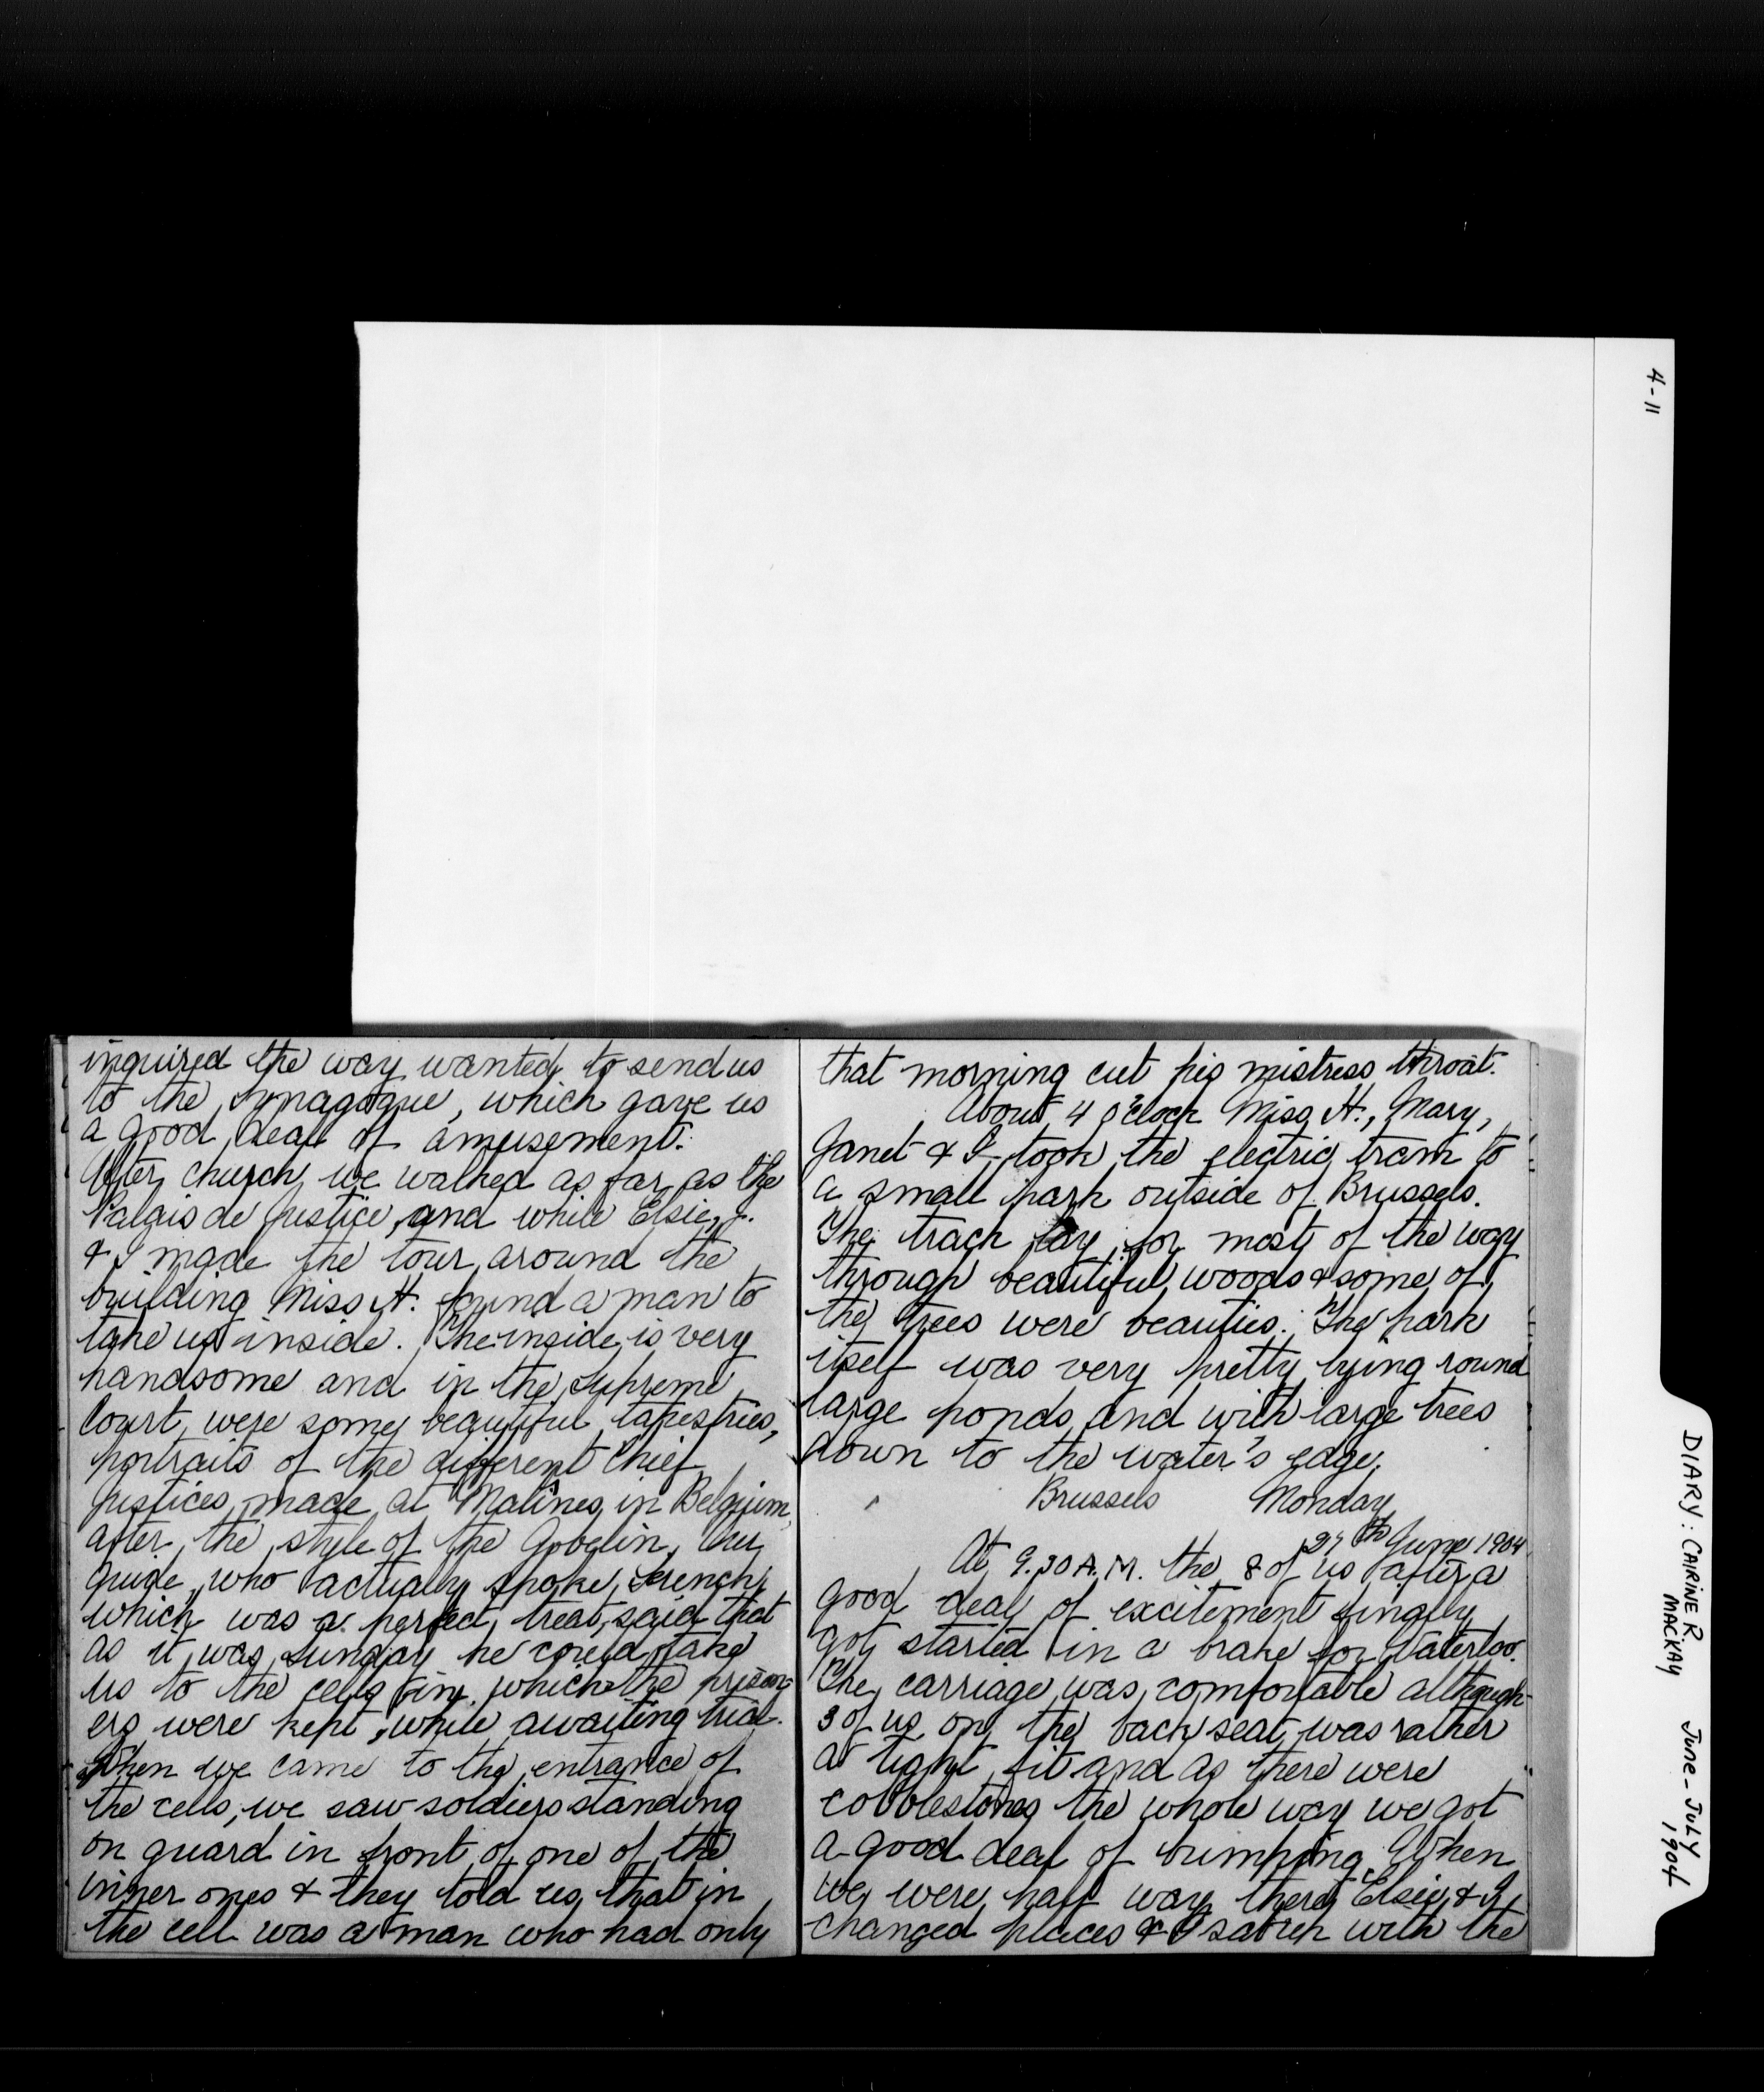 inquired the way wanted to send us
to the synagogue, which gave us
a good deal of amusement.
After church we walked as far as the
Palais de Justice, and while Elsie, J.
& I made the tour around the
building Miss H. found a man to
take us inside. The inside is very
handsome and in the Supreme
Court were some beautiful tapestries,
portraits of the different Chief
Justices, made at Malines in Belgium,
after the style of the Gobelin. Our
guide, who actually spoke French,
which was a perfect treat, said that
as it was Sunday he could take
us to the cells in which the prison-
ers were kept, while awaiting trial.
When we came to the entrance of
the cells, we saw soldiers standing
on guard in front of one of the
inner ones & they told us that in
the cell was a man who had only
that morning cut his mistress throat.
About 4 o'clock Miss H., Mary,
Janet & I took the electric tram to
a small park outside of Brussels.
The track lay for most of the way
through beautiful woods & some of
the trees were beauties. The park
itself was very pretty lying round
large ponds and with large trees
down to the water's edge.
Brussels Monday
27th June 1904
At 9.30 A.M. the 8 of us after a
good deal of excitement finally
got started in a brake for Waterloo.
The carriage was comfortable although
3 of us on the back seat was rather
a tight fit and as there were
cobblestones the whole way we got
a good deal of bumping. When
we were half way there Elsie & I
changed places & I sat up with the
4-11
DIARY: CAIRINE R
MACKAY
JUNE-JULY
1904